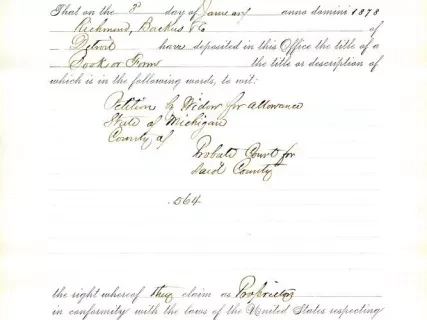 That on the 3d day of January anno domini 1878
Richmond, Backus & Co of
Detroit have deposited in this Office the title of a
Book or Form the title or description of
which is in the following words, to wit:
Petition by Widow for allowance
State of Michigan
County of
Probate Court for
said County
.564
the right whereof they claim as Proprietors
in conformity with the laws of the United States respecting